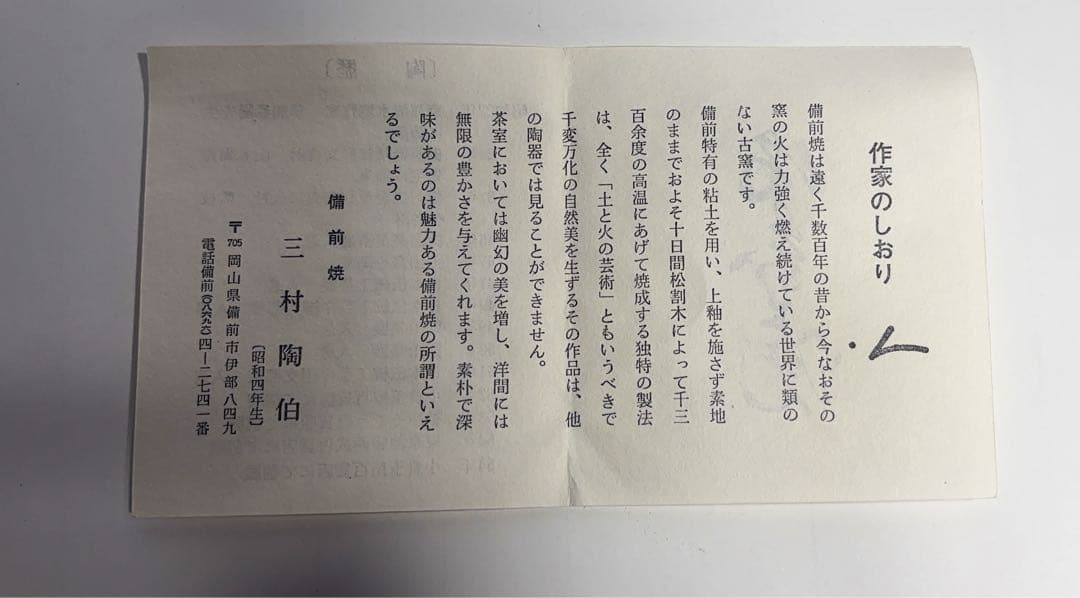 作家のしおり
備前焼は遠く千数百年の昔から今なおその
窯の火は力強く燃え続けている世界に類の
ない古窯です。
備前特有の粘土を用い、上釉を施さず素地
のままでおよそ十日間松割木によって千三
百余度の高温にあげて焼成する独特の製法
は、全く「土と火の芸術」ともいうべきで
千変万化の自然美を生ずるその作品は、他
の陶器では見ることができません。
茶室においては幽幻の美を増し、洋間には
無限の豊かさを与えてくれます。素朴で深
味があるのは魅力ある備前焼の所謂といえ
るでしょう。
備前焼
三村陶伯
〔昭和四年生〕
〒705 岡山県備前市伊部八四九
電話備前(〇八六九六)四―二七四一番